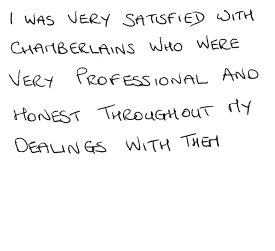 I WAS VERY SATISFIED WITH
CHAMBERLAINS WHO WERE
VERY PROFESSIONAL AND
HONEST THROUGHOUT MY
DEALINGS WITH THEM